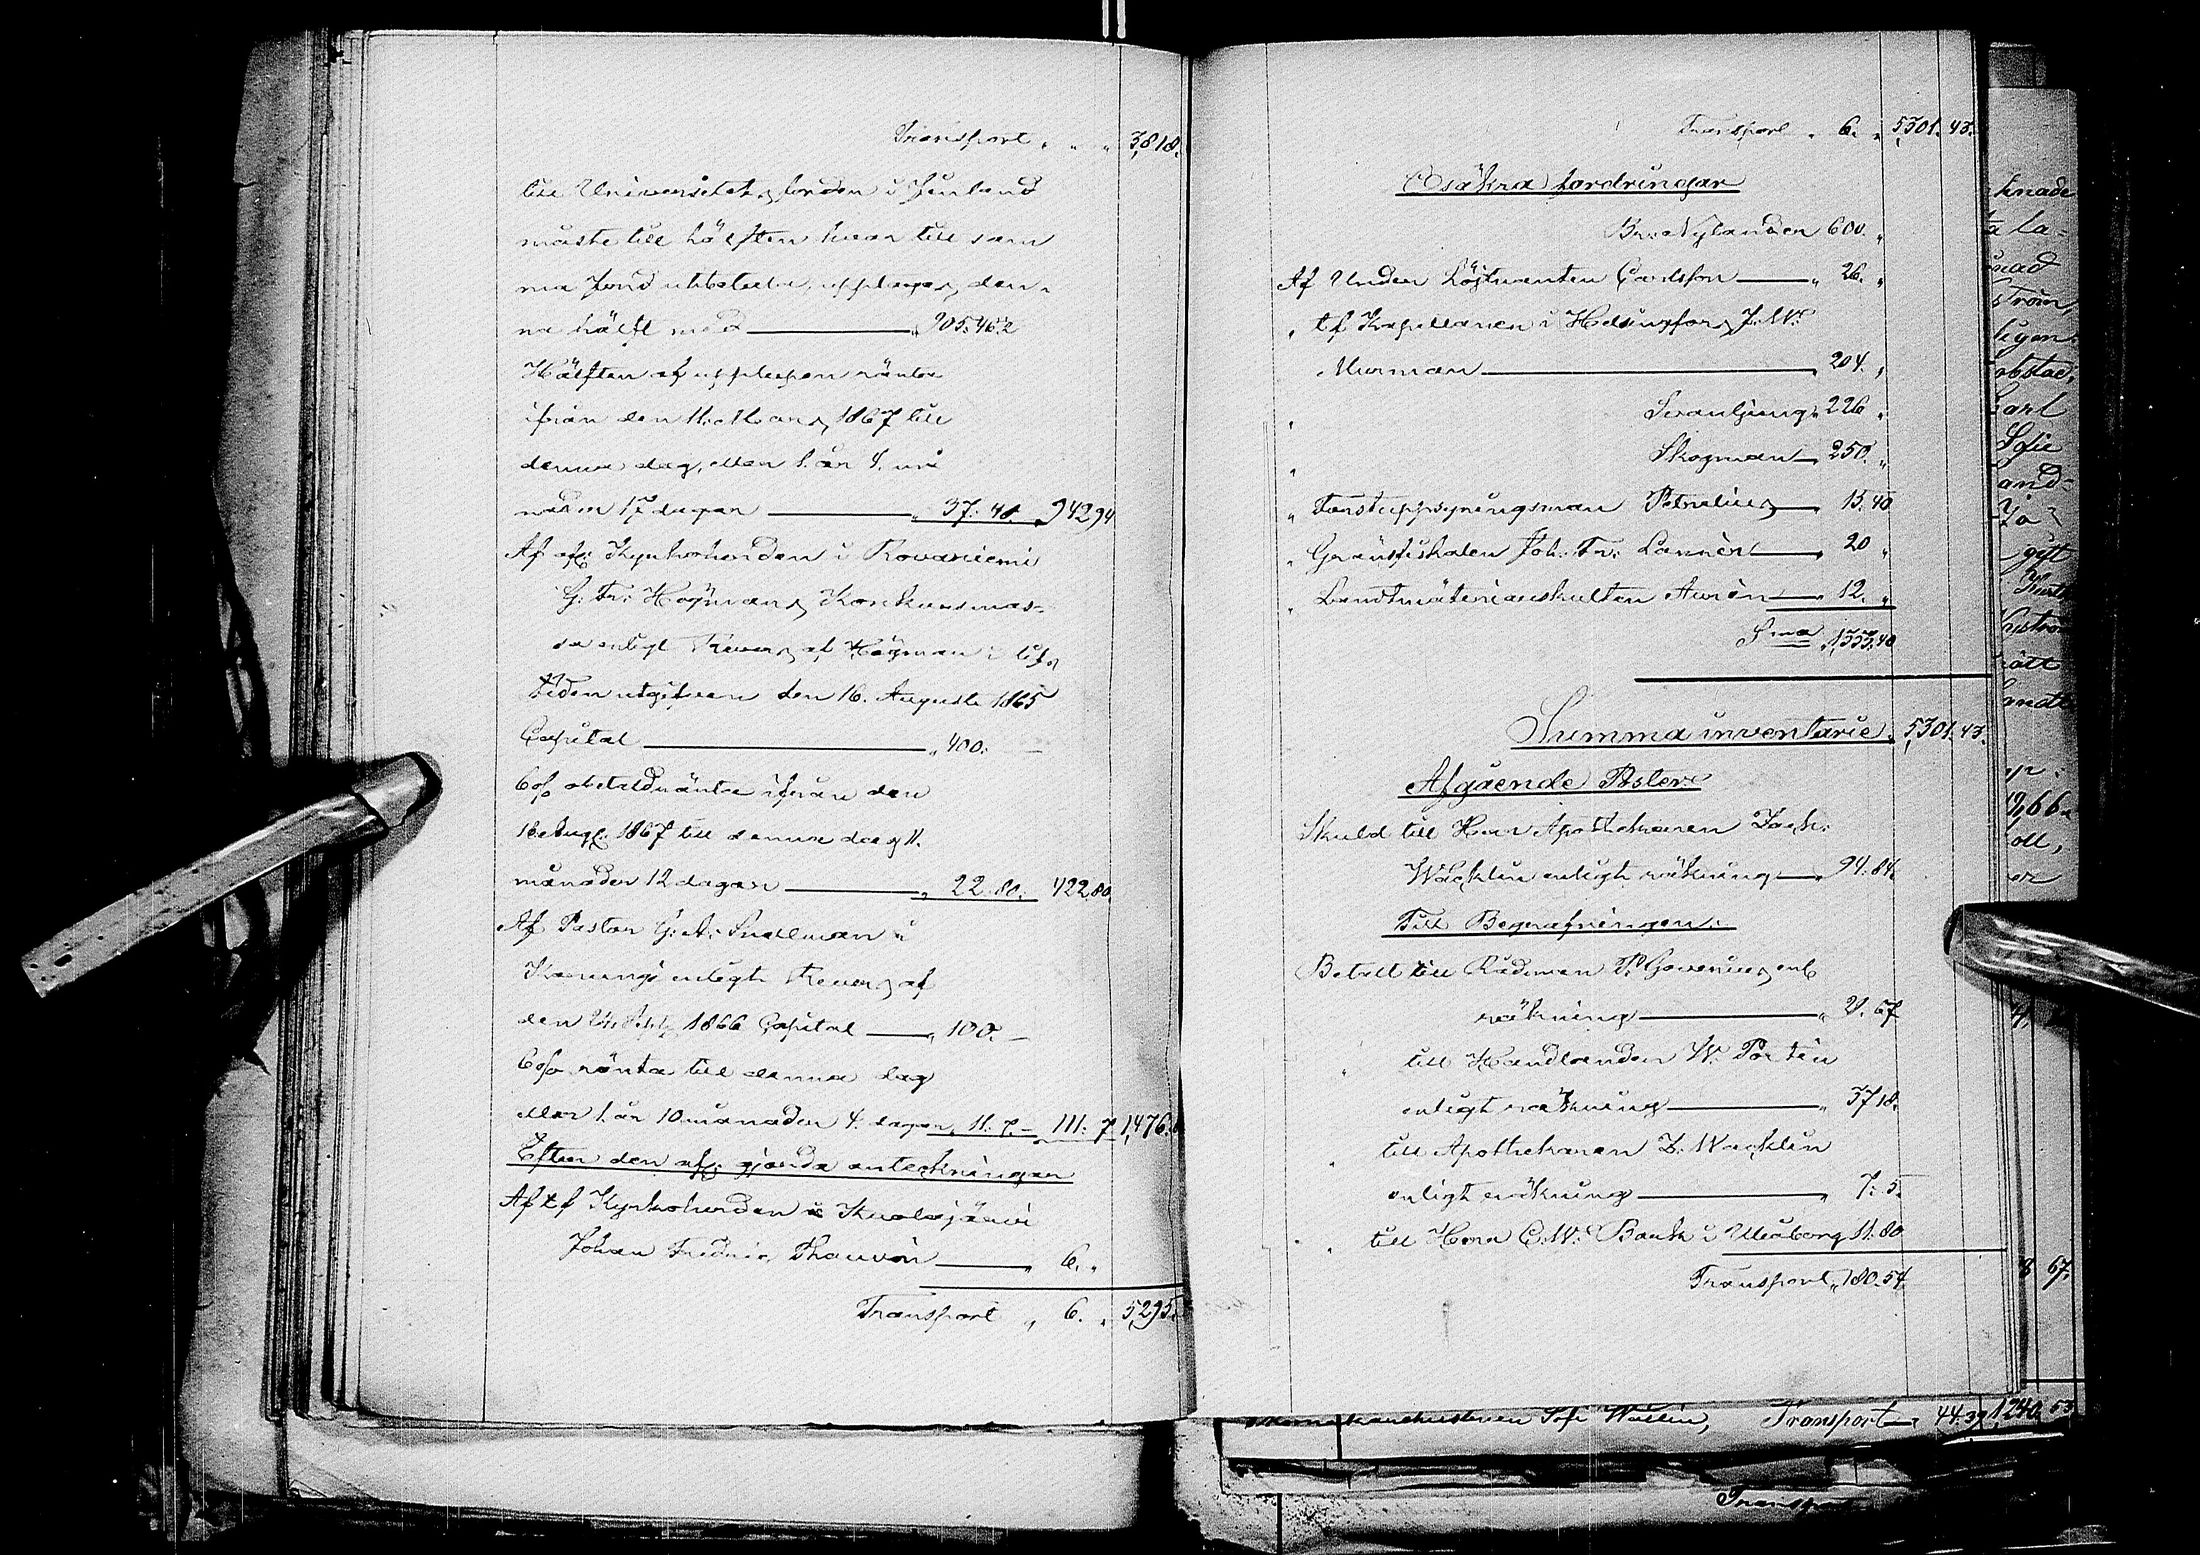 Transport „ „ „ 3,818.
till Universitets fonden i Finland
måste till hälften hvar till sam
ma fond utbetalas, upptages den-
na hälft med — „ 905.46.2
Hälften af upplupen ränta
ifrån den 11. Mars 1867 till
denna dag, eller 1. år 4. må
nader 17 dagar — „ 37. 48. „ 942 94
Af afl. Kyrkoherden i Rovaniemi
G. Fr. Högmans Konkursmas-
sa enligt Revers af Högman i lifs
tiden utgifven den 16. Augusti 1865
Capital — „ 400. —
6 o/o obetald ränta ifrån den
16. Aug. 1867 till denna dag 11.
månader 12 dagar — „ 22. 80. 422.80.
Af Pastor G. A. Snellman i
enligt Revers af
den 24. Sept. 1866 Capital — „ 100. —
6 o/o ränta till denna dag
eller 1. år 10 månader 4. dagar „ 11. 7. — 111. 7 1,476.
Efter den afl. gjorda anteckningar
Af t f Kyrkoherden i Kuolajärvi
Johan Fredric Thauvón — „ 6. „
Transport „ 6. „ 5,295.
Transport „ 6. „ 5,301. 43.
Osäkra fordringar
Br. Nylander 600. „
Af Under Löjtnanten Carlsson — „ 26. „
„ t f Kapellanen i Helsingfors J. W.
Murman — „ 204. „
„ Svanljung „ 226 „
„ Skogman — 250. „
„ Forstuppsyningsman Petrelius — „ 15. 40
„ Gränsfiskalen Joh. Fr. Lannér — „ 20 „
„ Landtmäteriauskulten Aurén — „ 12. „
Sma 1,353.40
Summa inventarie. 5,301. 43.
Afgående Poster.
Skuld till Herr Apothekaren Zach.
Wacklin enligt räkning — „ 94. 84.
Till Begrafningen.
Betalt till Rådman P. Goverius, enl
räkning — „ 67
„ till Handlanden W. Portén
enligt räkning — „ 37 18.
„ till Apothekaren Z. Wacklin
enligt räkning — „ 7. 5.
„ „ till Herr C. W. Bank i Uleåborg 11. 80
Transport „ 180. 54.
knade
ta la-
nad
ström,
ligen
karl
Sofie
and-
gift
rätt
19,66
8 67.
Sofi Wallin, Transport — 44. 39 1,240. 53
Transport